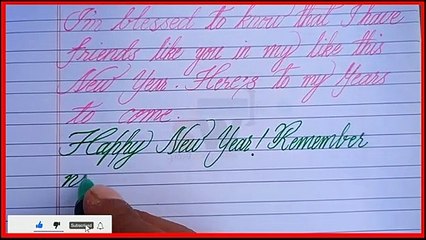 I'm blessed to know that I have
friends like you in my like this
New Year. Here's to my Years
to come.
Happy New Year! Remember
n
Subscribed